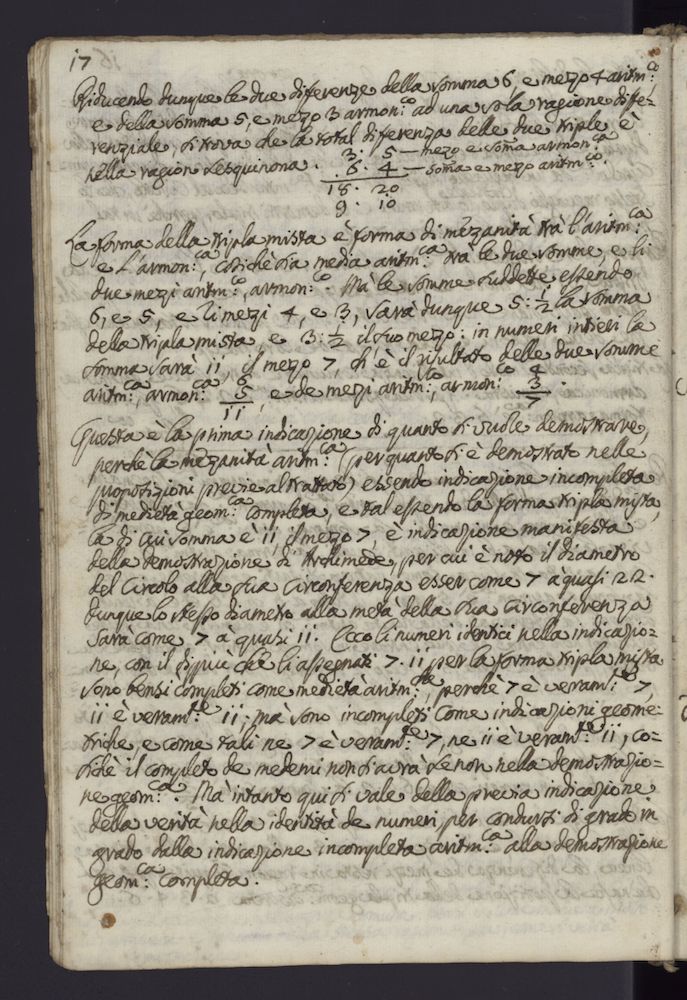 17
Riducendo dunque le due diferenze della somma 6, e mezo 4 aritm:co
e della somma 5, e mezo 3 armon:co ad una sola ragione diffe-
renziale, si trova che la total diferenza delle due triple è
nella ragion sesquinona. 3. 5 — mezo e soma armon:co
6. 4 — soma e mezo aritm:co
18. 20
9. 10
La forma della tripla mista è forma di mezzanità trà l'aritm:ca
e l'armon:ca, cosichè sia media aritm:ca trà le due somme, e li
due mezi aritm:co, armon:co. Mà le somme suddette essendo
6, e 5, e li mezi 4, e 3, sarà dunque 5:½ la somma
della tripla mista, e 3:½ il suo mezo: in numeri intieri la
somma sarà 11, il mezo 7, ch'è il risultato delle due somme
aritm:ca, armon:ca 6 5 11, e de mezi aritm:co, armon:co 4 3 7.
Questa è la prima indicazione di quanto si vuole demostrare,
perchè la mezzanità aritm:ca (per quanto si è demostrato nelle
proposizioni previe al trattato) essendo indicazione incompleta
di medietà geom:ca completa, e tal essendo la forma tripla mista,
la di cui somma è 11, il mezo 7, è indicazione manifesta
della demostrazione di Archimede, per cui è noto il diametro
del Circolo alla sua circonferenza esser come 7 à quasi 22.
dunque lo stesso diametro alla metà della sua circonferenza
sarà come 7 à quasi 11. Ecco li numeri identici nella indicazio-
ne, con il dipiù che li assegnati 7. 11 per la forma tripla mista
sono bensì completi come medietà aritm:che, perchè 7 è veram:te 7,
11 è veram:te 11; mà sono incompleti come indicazioni geome-
triche, e come tali ne 7 è veram:te 7, ne 11 è veram:te 11, co-
sichè il completo de medemi non si avrà se non nella demostrazio-
ne geom:ca. Mà intanto qui si vale della previa indicazione
della verità nella identità de numeri per condursi di grado in
grado dalla indicazione incompleta aritm:ca alla demostrazione
geom:ca completa.